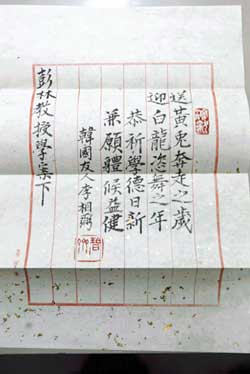 送黃兎奔走之歲
迎白龍恣舞之年
恭祈學德日新
兼願體候益健
韓國友人李相弼
彭林教授學棐下